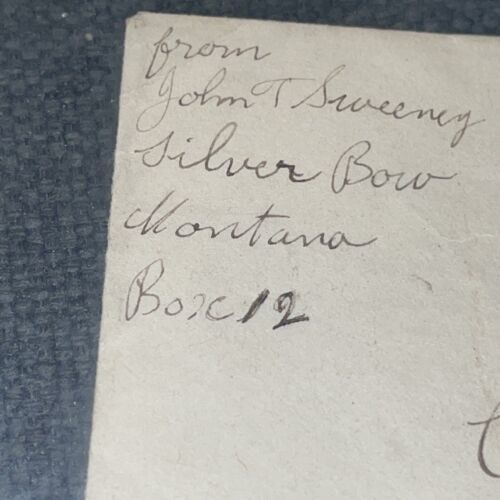 from
John T Sweeney
Silver Bow
Montana
Box 12